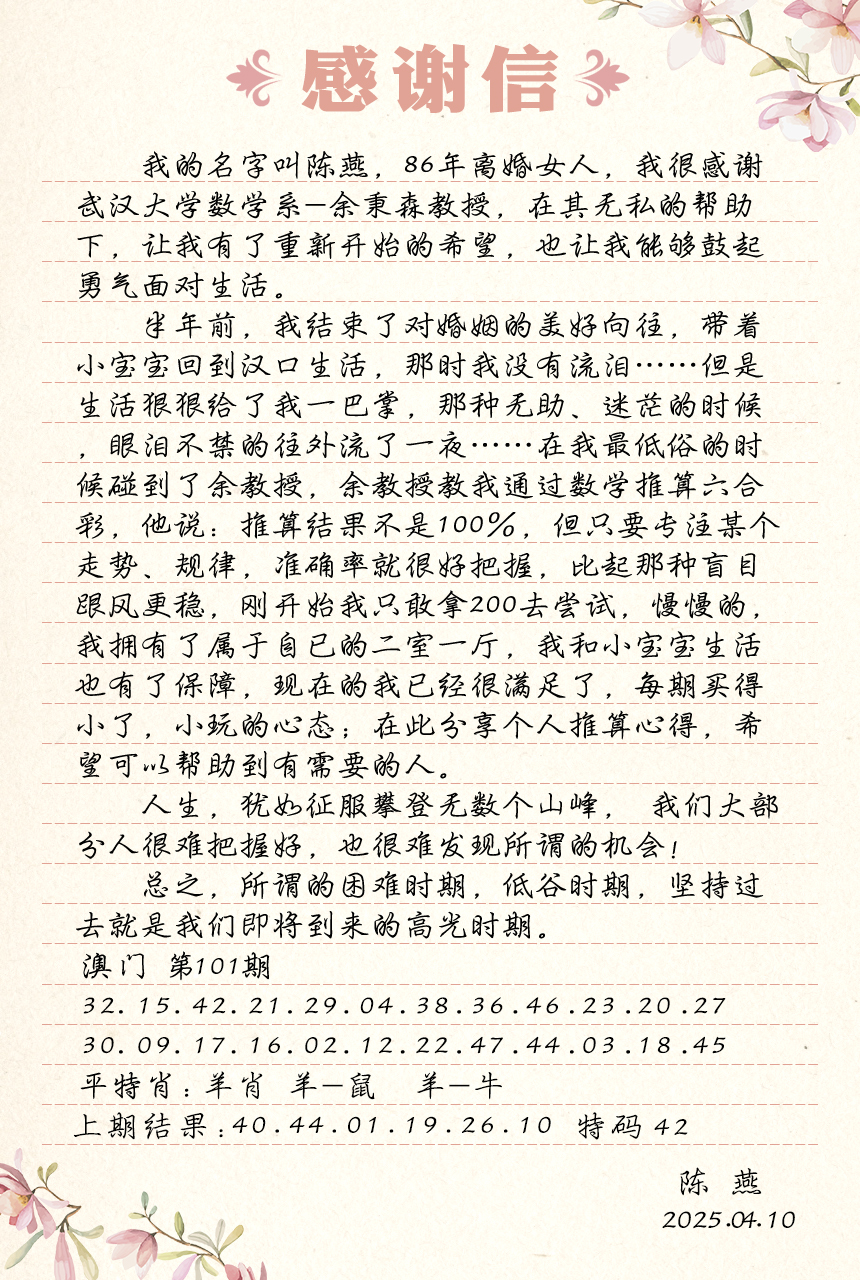 感谢信
我的名字叫陈燕，86年离婚女人，我很感谢
武汉大学数学系—余秉森教授，在其无私的帮助
下，让我有了重新开始的希望，也让我能够鼓起
勇气面对生活。
半年前，我结束了对婚姻的美好向往，带着
小宝宝回到汉口生活，那时我没有流泪……但是
生活狠狠给了我一巴掌，那种无助、迷茫的时候
，眼泪不禁的往外流了一夜……在我最低俗的时
候碰到了余教授，余教授教我通过数学推算六合
彩，他说：推算结果不是100%，但只要专注某个
走势、规律，准确率就很好把握，比起那种盲目
跟风更稳，刚开始我只敢拿200去尝试，慢慢的，
我拥有了属于自已的二室一厅，我和小宝宝生活
也有了保障，现在的我已经很满足了，每期买得
小了，小玩的心态；在此分享个人推算心得，希
望可以帮助到有需要的人。
人生，犹如征服攀登无数个山峰， 我们大部
分人很难把握好，也很难发现所谓的机会！
总之，所谓的困难时期，低谷时期，坚持过
去就是我们即将到来的高光时期。
澳门 第101期
32.15.42.21.29.04.38.36.46.23.20.27
30.09.17.16.02.12.22.47.44.03.18.45
平特肖：羊肖 羊—鼠 羊—牛
上期结果：40.44.01.19.26.10 特码 42
陈 燕
2025.04.10